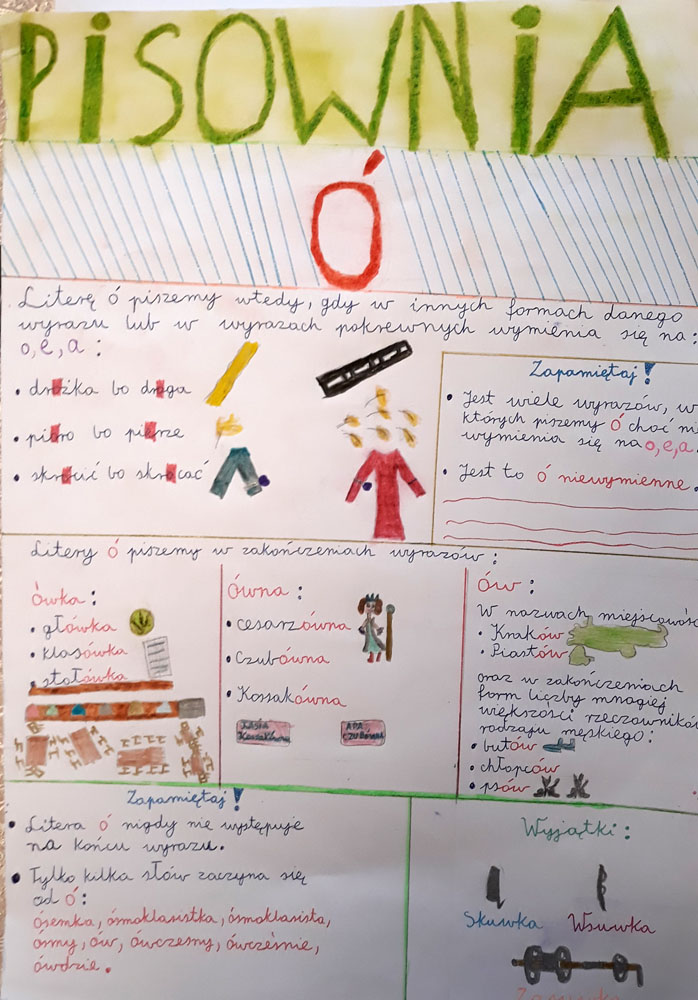 PiSOWNiA
Ó
Literę ó piszemy wtedy, gdy w innych formach danego
wyrazu lub w wyrazach pokrewnych wymienia się na:
o, e, a :
• dróżka bo droga
• pióro bo pierze
• skrócić bo skracać
Zapamiętaj!
• Jest wiele wyrazów, w
których piszemy ó choć nie
wymienia się na o, e, a.
• Jest to ó niewymienne.
Litery ó piszemy w zakończeniach wyrazów:
ówka:
• główka
• klasówka
• stołówka
ówna:
• cesarzówna
• Czubówna
• Kossakówna
KASIA
Kossakówna
ADA
CZUBÓWNA
ów:
w nazwach miejscowości
• Kraków
• Piastów
oraz w zakończeniach
form liczby mnogiej
większości rzeczowników
rodzaju męskiego:
• butów
• chłopców
• psów
Zapamiętaj!
• Litera ó nigdy nie występuje
na końcu wyrazu.
• Tylko kilka słów zaczyna się
od ó:
ósemka, ósmoklasistka, ósmoklasista,
ósmy, ów, ówczesny, ówcześnie,
ówdzie.
Wyjątki:
Skuwka
Wsuwka